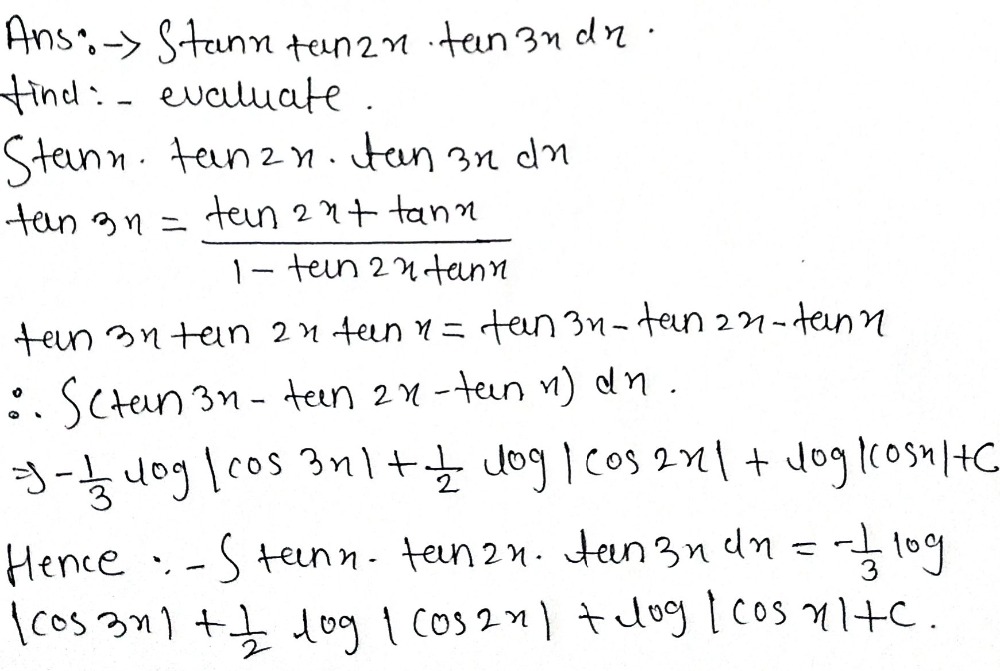 Ans:→ ∫tanx tan2x .tan3x dx.
find:- evaluate.
∫tanx. tan2x. tan 3x dx
tan 3x = tan 2x + tanx / 1 - tan 2x tanx
tan 3x tan 2x tan x = tan 3x - tan 2x - tan x
∴ ∫(tan 3x - tan 2x - tan x) dx.
⇒ -1/3 log |cos 3x| + 1/2 log |cos 2x| + log|cosx|+C
Hence :- ∫ tanx. tan2x. tan3x dx = -1/3 log
|cos 3x| + 1/2 log |cos 2x| + log |cos x|+C.